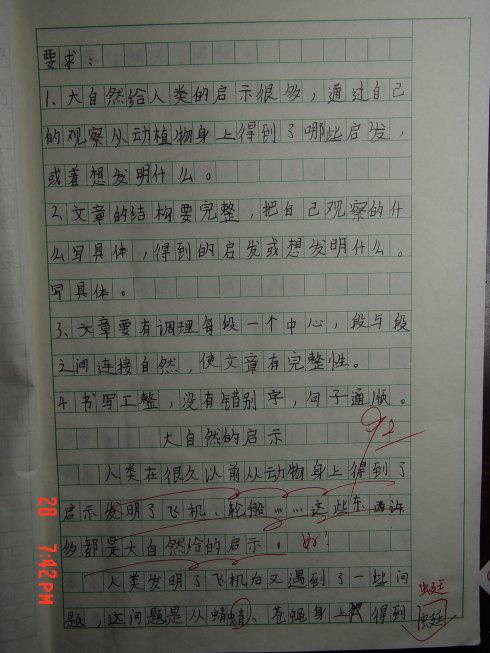 要求：
1、大自然给人类的启示很多，通过自己
的观察从动植物身上得到了哪些启发，
或着想发明什么。
2、文章的结构要完整，把自己观察的什
么写具体，得到的启发或想发明什么。
写具体。
3、文章要有调理每段一个中心，段与段
之间连接自然，使文章有完整性。
4 书写工整，没有错别字，句子通顺。
大自然的启示
92
人类在很久以前从动物身上得到了
启示发明了飞机、轮船……这些东西许
多都是大自然给的启示。好！
人类发明了飞机后又遇到了一些问
蜓
题，这问题是从蜻蜻、苍蝇身上得到
蜓
28 7:42PM